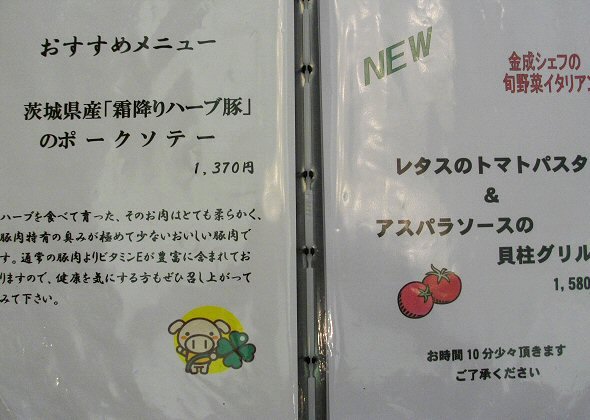 おすすめメニュー
茨城県産「霜降りハーブ豚」
のポークソテー
1,370円
ハーブを食べて育った、そのお肉はとても柔らかく、
豚肉特有の臭みが極めて少ないおいしい豚肉で
す。通常の豚肉よりビタミンEが豊富に含まれてお
りますので、健康を気にする方もぜひ召し上がって
みて下さい。
NEW
金成シェフの
旬野菜イタリアン
レタスのトマトパスタ
&
アスパラソースの
貝柱グリル
1,580
お時間10分少々頂きます
ご了承ください